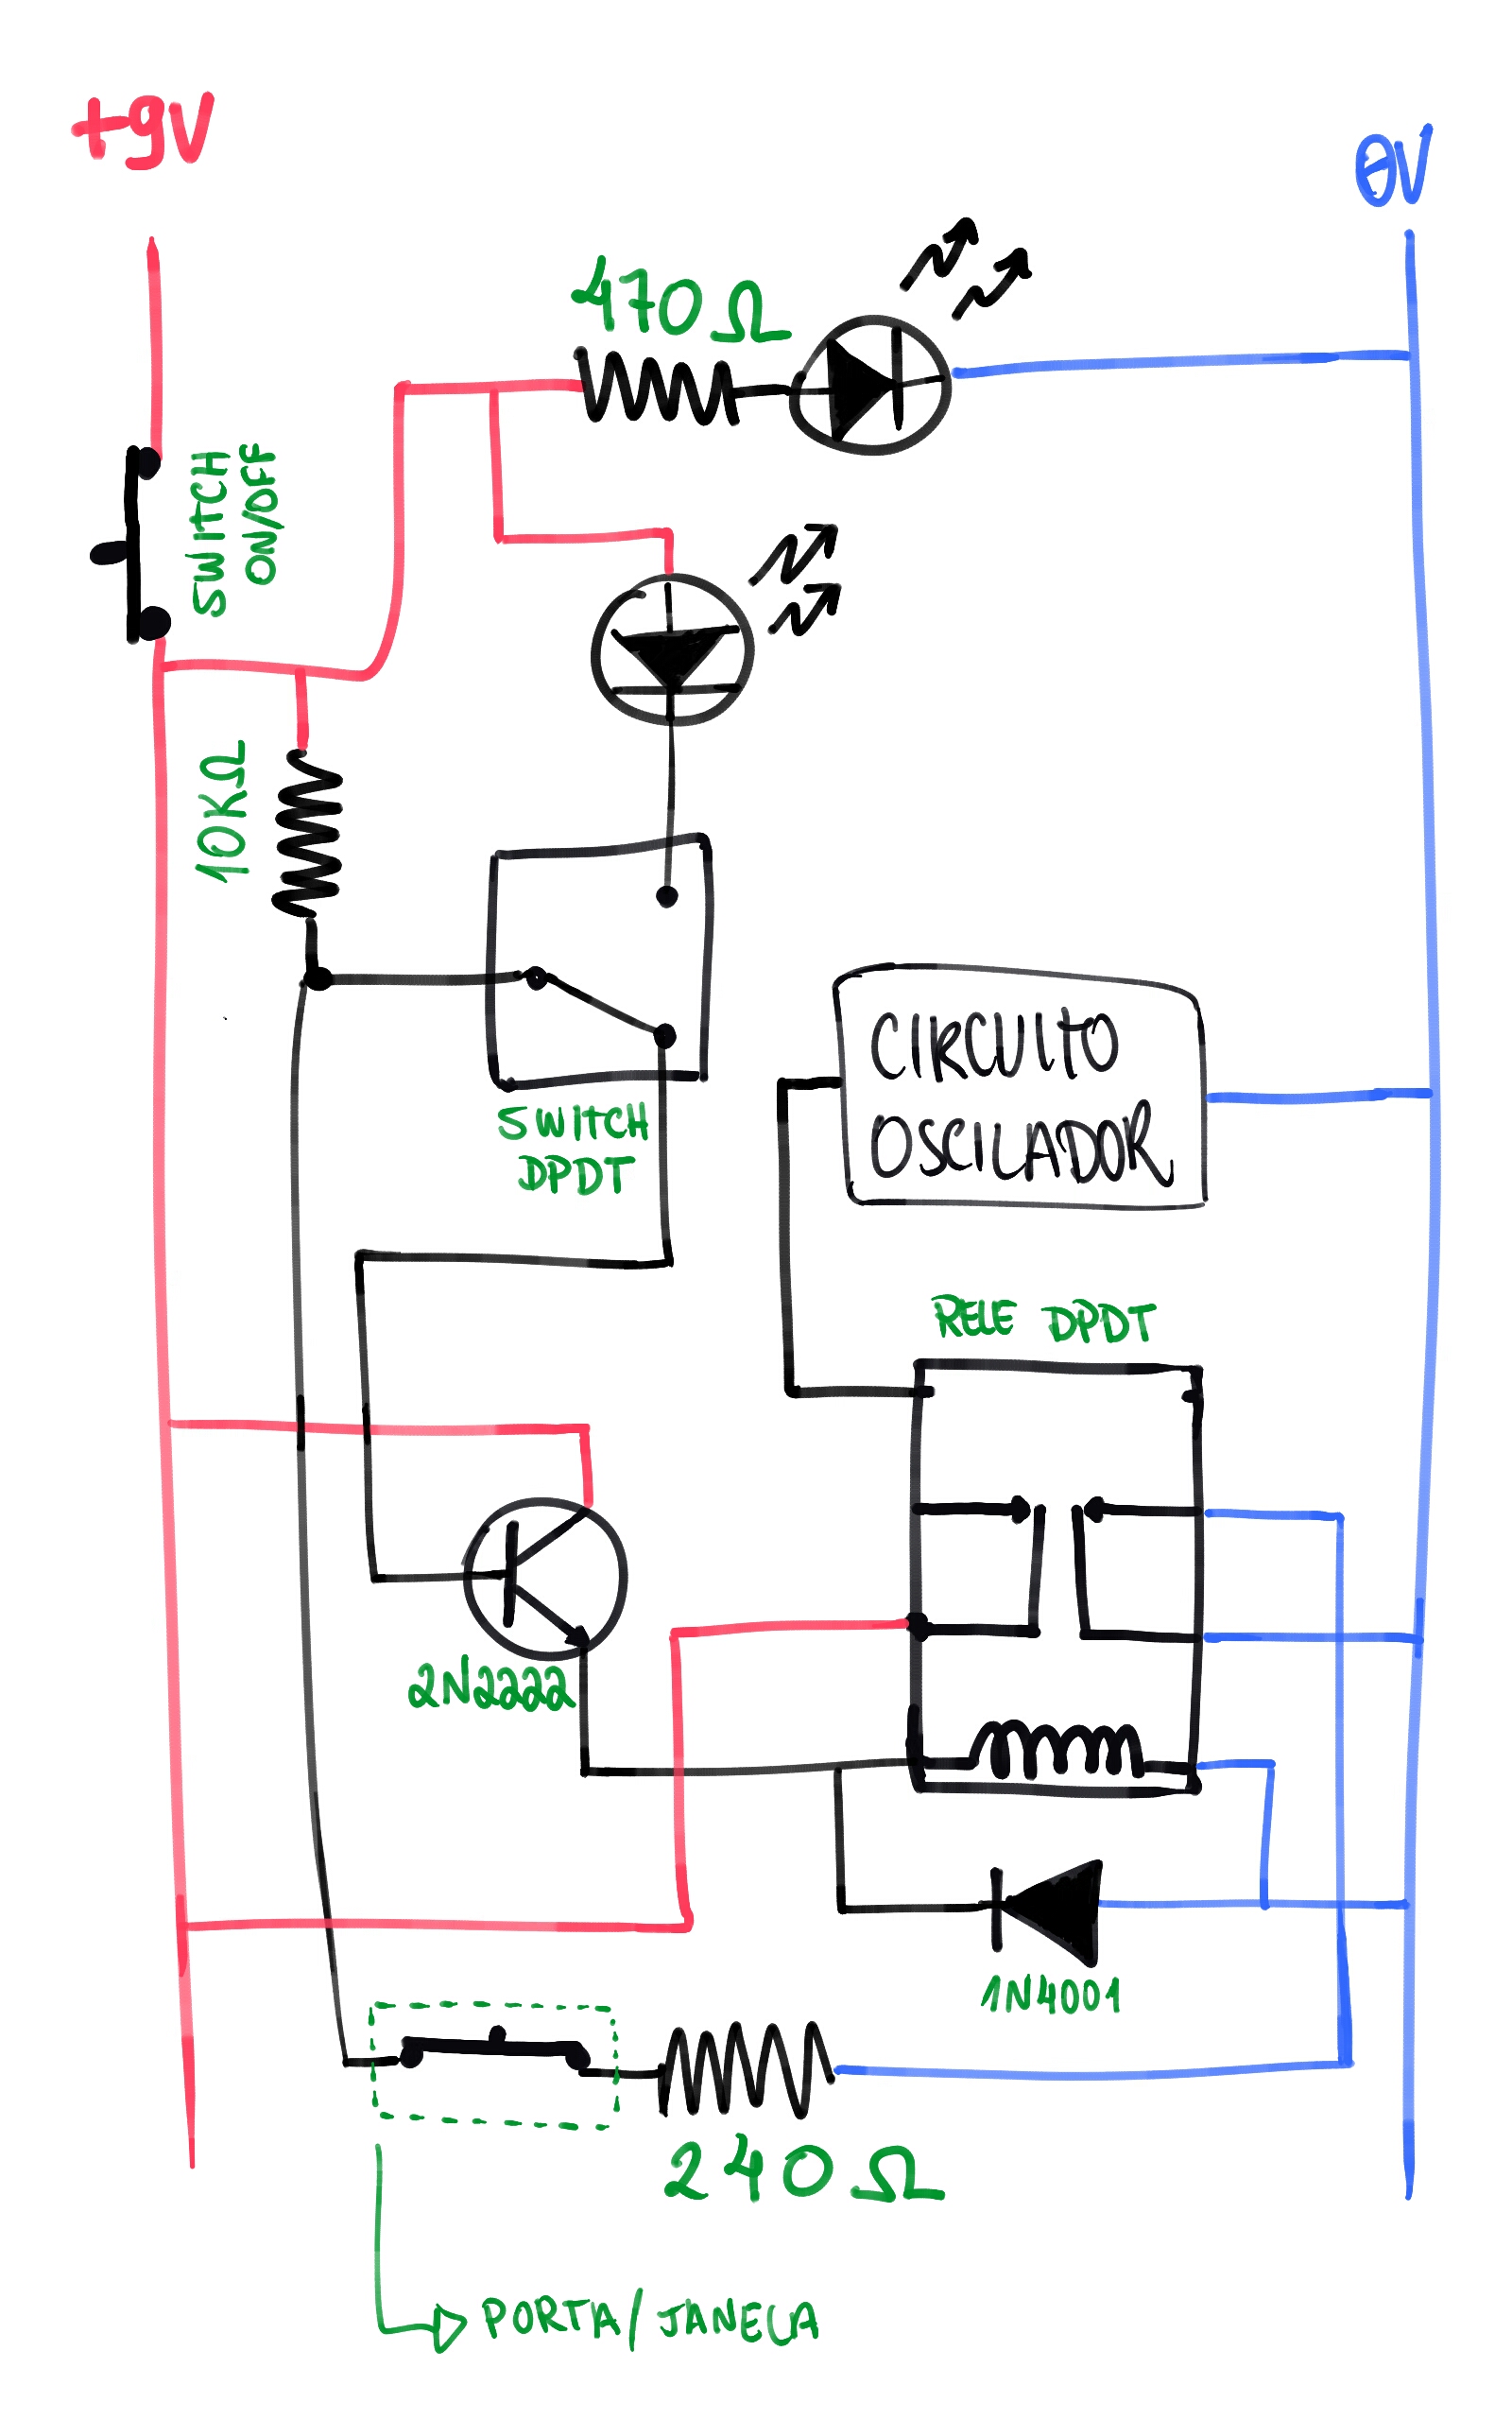 +9V
0V
470Ω
SWITCH
ON/OFF
10KΩ
SWITCH
DPDT
CIRCUITO
OSCILADOR
RELE DPDT
2N2222
1N4001
240Ω
PORTA/JANELA